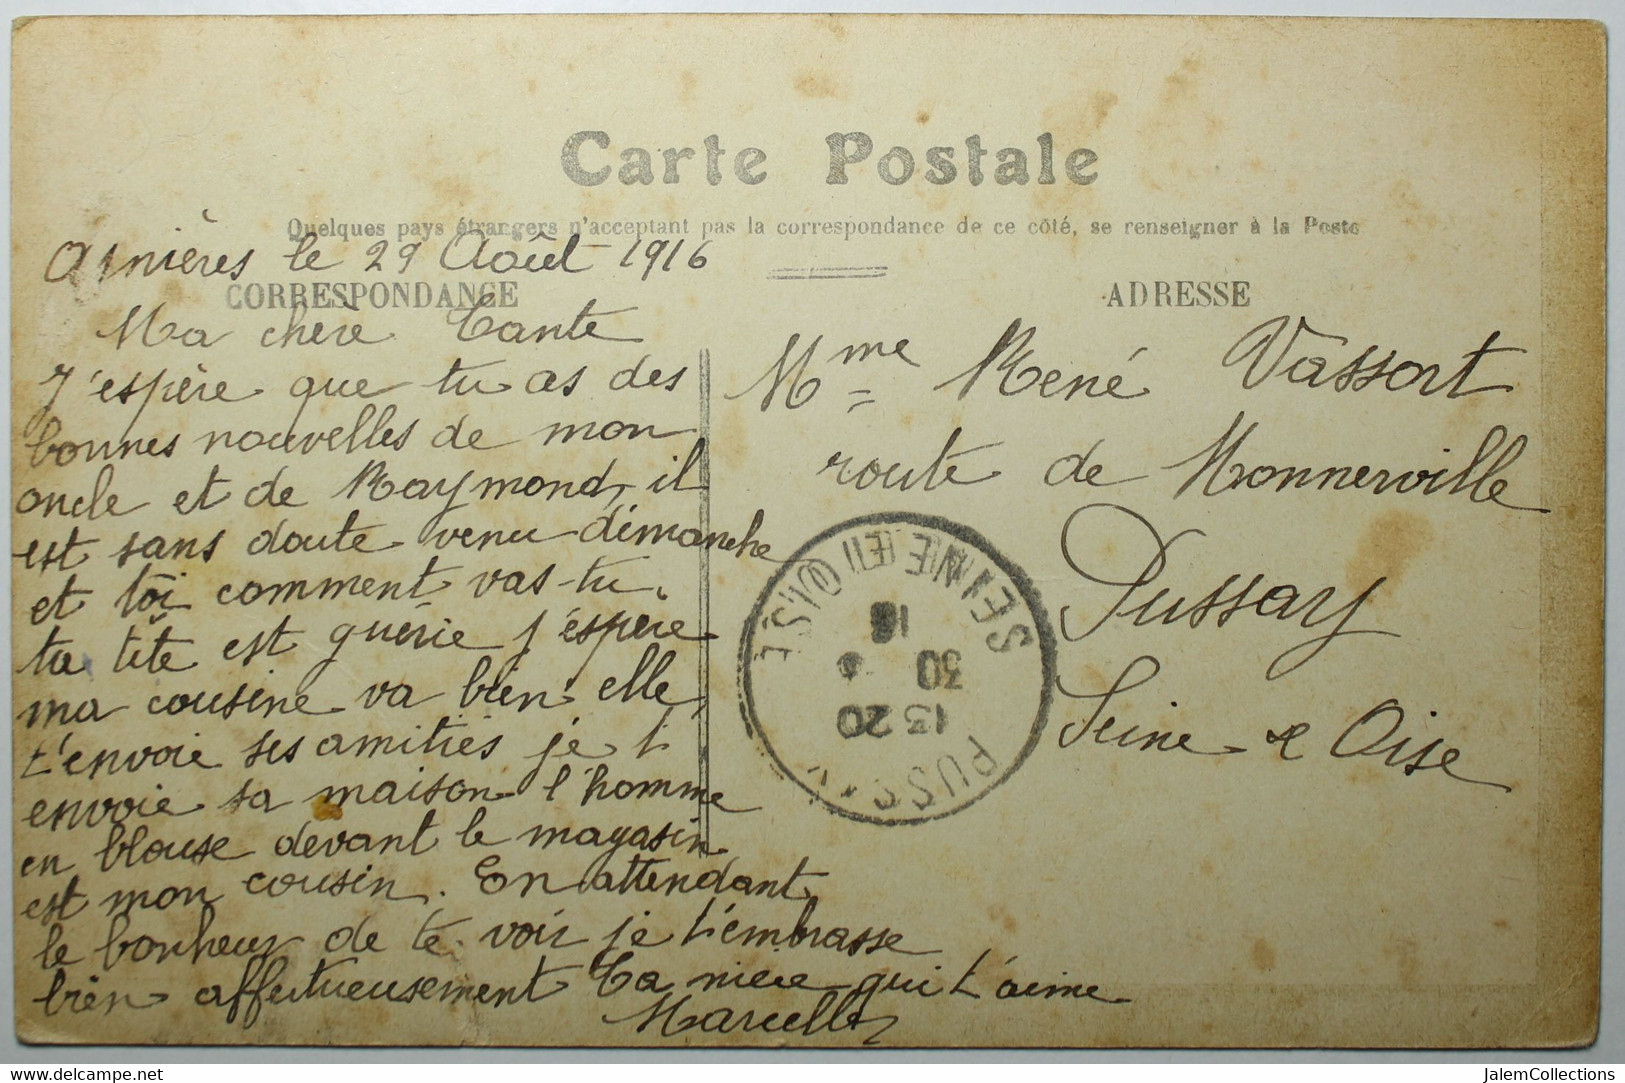 Carte Postale
Quelques pays étrangers n'acceptant pas la correspondance de ce côté, se renseigner à la Poste
CORRESPONDANCE
ADRESSE
Asnières le 29 Août 1916
Ma chère Tante
J'espère que tu as des
bonnes nouvelles de mon
oncle et de Raymond, il
est sans doute venu dimanche
et toi comment vas-tu.
ta tête est guérie j'espère
ma cousine va bien elle
t'envoie ses amitiés je t'
envoie sa maison l'homme
en blouse devant le magasin
est mon cousin. En attendant
le bonheur de te voir je t'embrasse
bien affectueusement Ta nièce qui t'aime
Marcelle
Mme René Vassort
route de Monnerville
Pussay
Seine & Oise
PUSSAY
13 20
30 8
16
SEINE ET OISE
www.delcampe.net
JalemCollections